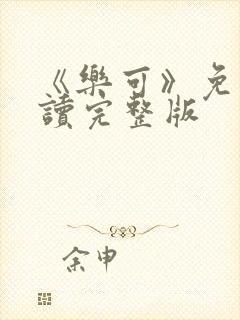 《樂可》免
讀完整版
余申